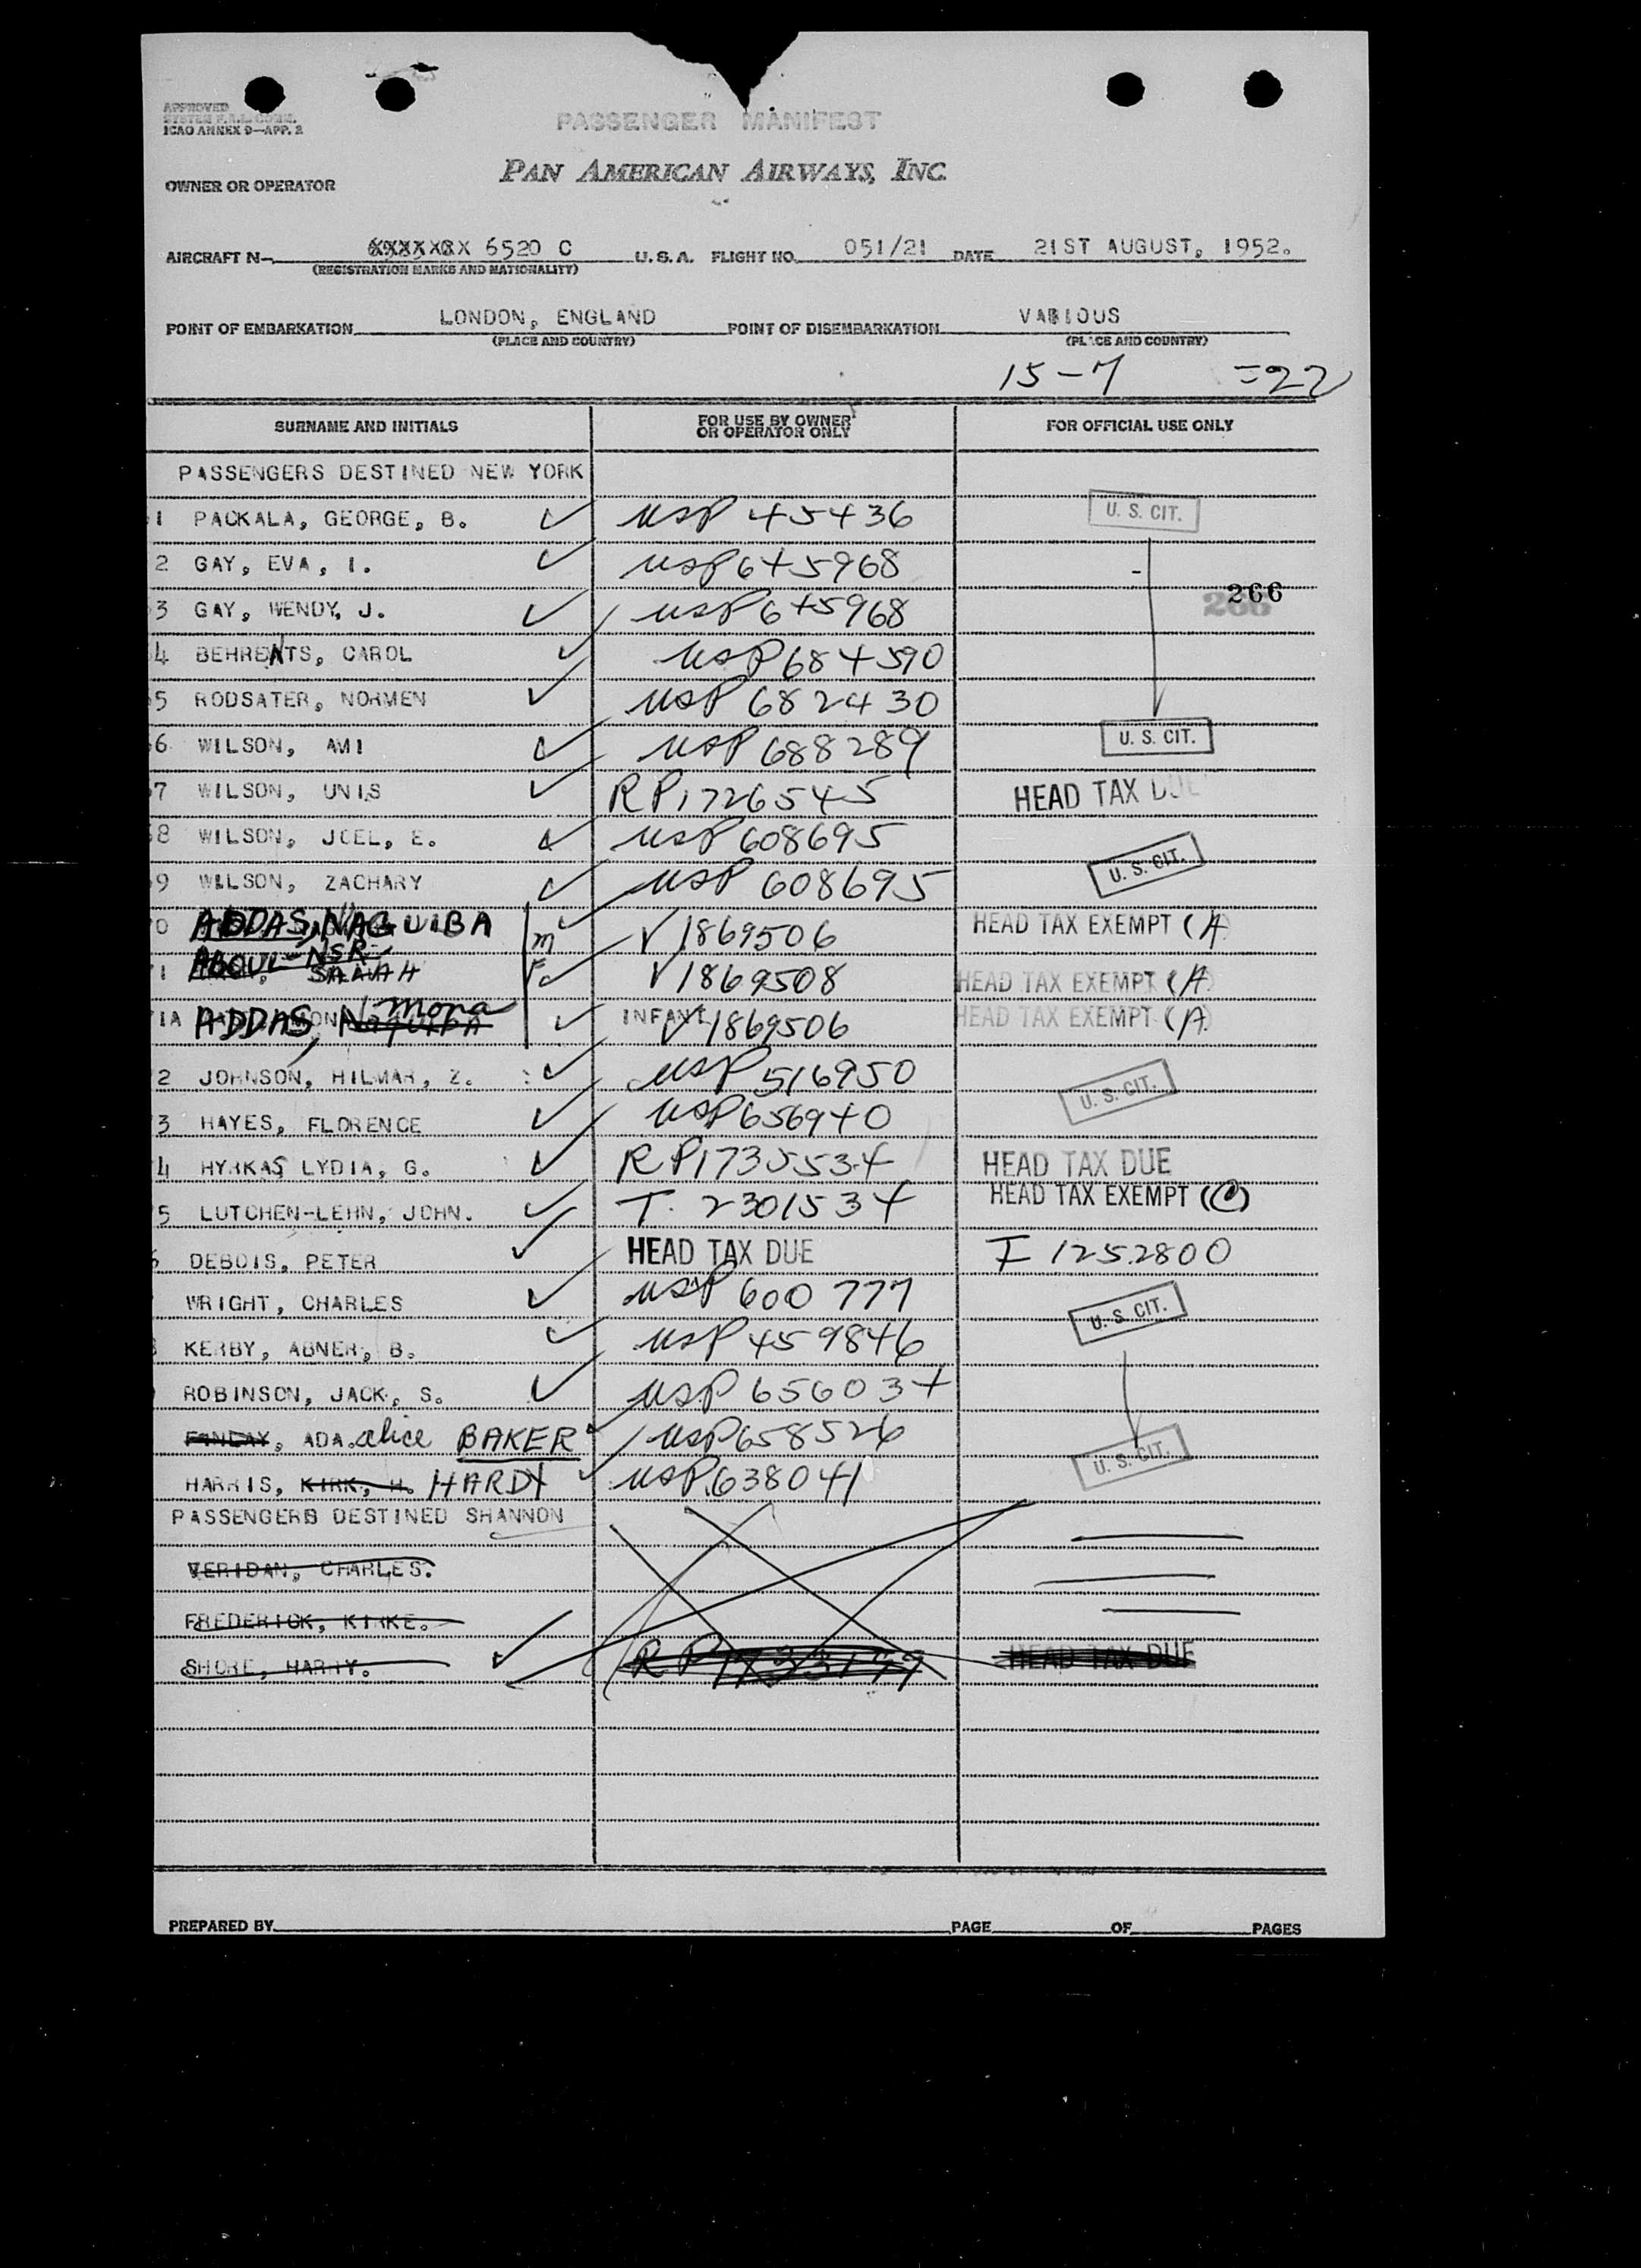 APPROVED
SYSTEM F.A.L. COMM.
ICAO ANNEX 9—APP. 2
PASSENGER MANIFEST
OWNER OR OPERATOR PAN AMERICAN AIRWAYS, INC.
AIRCRAFT N— 6520 C U.S.A. FLIGHT NO. 051/21 DATE 21ST AUGUST, 1952.
(REGISTRATION MARKS AND NATIONALITY)
POINT OF EMBARKATION LONDON, ENGLAND POINT OF DISEMBARKATION VARIOUS
(PLACE AND COUNTRY) (PLACE AND COUNTRY)
15-7 =22
SURNAME AND INITIALS FOR USE BY OWNER OR OPERATOR ONLY FOR OFFICIAL USE ONLY
PASSENGERS DESTINED NEW YORK
1 PACKALA, GEORGE, B. USP 45436 U. S. CIT.
2 GAY, EVA, I. USP 645968
266
3 GAY, WENDY, J. USP 645968
4 BEHRENTS, CAROL USP 684590
5 RODSATER, NORMEN USP 682430
6 WILSON, AMI USP 688289 U. S. CIT.
7 WILSON, UNIS RP1726545 HEAD TAX DUE
8 WILSON, JOEL, E. USP 608695
9 WILSON, ZACHARY USP 608695 U. S. CIT.
0 ADDAS, NAGUIBA M V1869506 HEAD TAX EXEMPT (A)
1 ABOUL-NSR SAMAH F V1869508 HEAD TAX EXEMPT (A)
71A ADDAS, Mona INFANT V1869506 HEAD TAX EXEMPT (A)
2 JOHNSON, HILMAR, Z. USP 516950 U. S. CIT.
3 HAYES, FLORENCE USP 656940
4 HYRKAS LYDIA, G. RP1735534 HEAD TAX DUE
5 LUTCHEN-LEHN, JOHN. T. 2301534 HEAD TAX EXEMPT (C)
DEBOIS, PETER HEAD TAX DUE I 1252800
WRIGHT, CHARLES USP 600777 U. S. CIT.
KERBY, ABNER, B. USP 459846
ROBINSON, JACK, S. USP 656034
FANLAY, ADA. alice BAKER USP 658526 U. S. CIT.
HARRIS, KIRK, H. HARDY USP 638041
PASSENGERS DESTINED SHANNON
VERIDAN, CHARLES.
FREDERICK, KIRKE.
SHORE, HARRY. HEAD TAX DUE
PREPARED BY PAGE OF PAGES